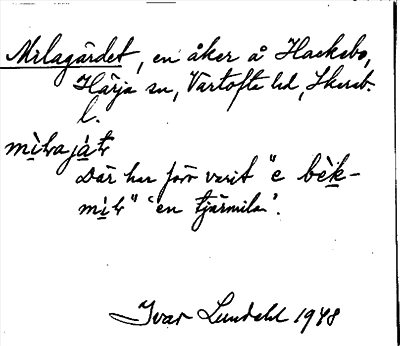 Milagärdet, en åker å Hackebo,
Härja sn, Vartofta hd, Skarab.
l.
mìlvajátr
Där har förr varit "e bèk-
mìlv" "en tjärmila".
Ivar Lundahl 1948